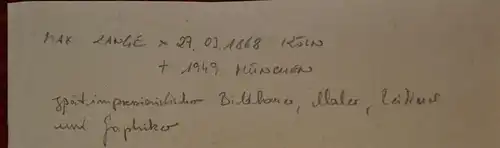 MAX LANGE * 27. 03. 1868 KÖLN
+ 1949 MÜNCHEN
spätimpressionistischer Bildhauer, Maler, Zeichner
und Graphiker